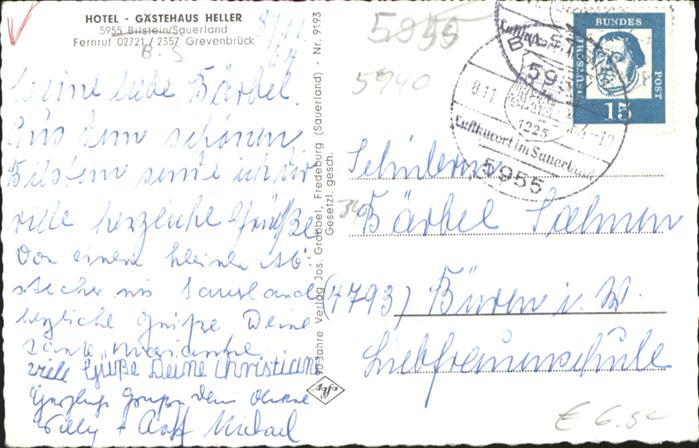 HOTEL - GÄSTEHAUS HELLER
5955 Bilstein/Sauerland
Fernruf 02721 / 2357 Grevenbrück
8/11
64
B. S
Meine liebe Bärbel.
Aus dem schönen
Bilstein sende ich dir
viele herzliche Grüße
Von einem kleinen Ab-
stecher ins Sauerland
herzliche Grüße Deine
Tante Marianne
viele Grüße Deine Christiane
Herzliche Grüße dein Onkel
Willy + Michael
50 Jahre Verlag Jos. Grobbel, Fredeburg (Sauerland) - Nr. 9193
Gesetzl. gesch.
Agfa
5955
5940
DEUTSCHE BUNDESPOST
15
Luftkurort im Sauerland
8.11.
1225
5955
Schülerin
34
Bärbel Salmen
(4793) Büren i. W.
Liebfrauenschule
€ 6.50